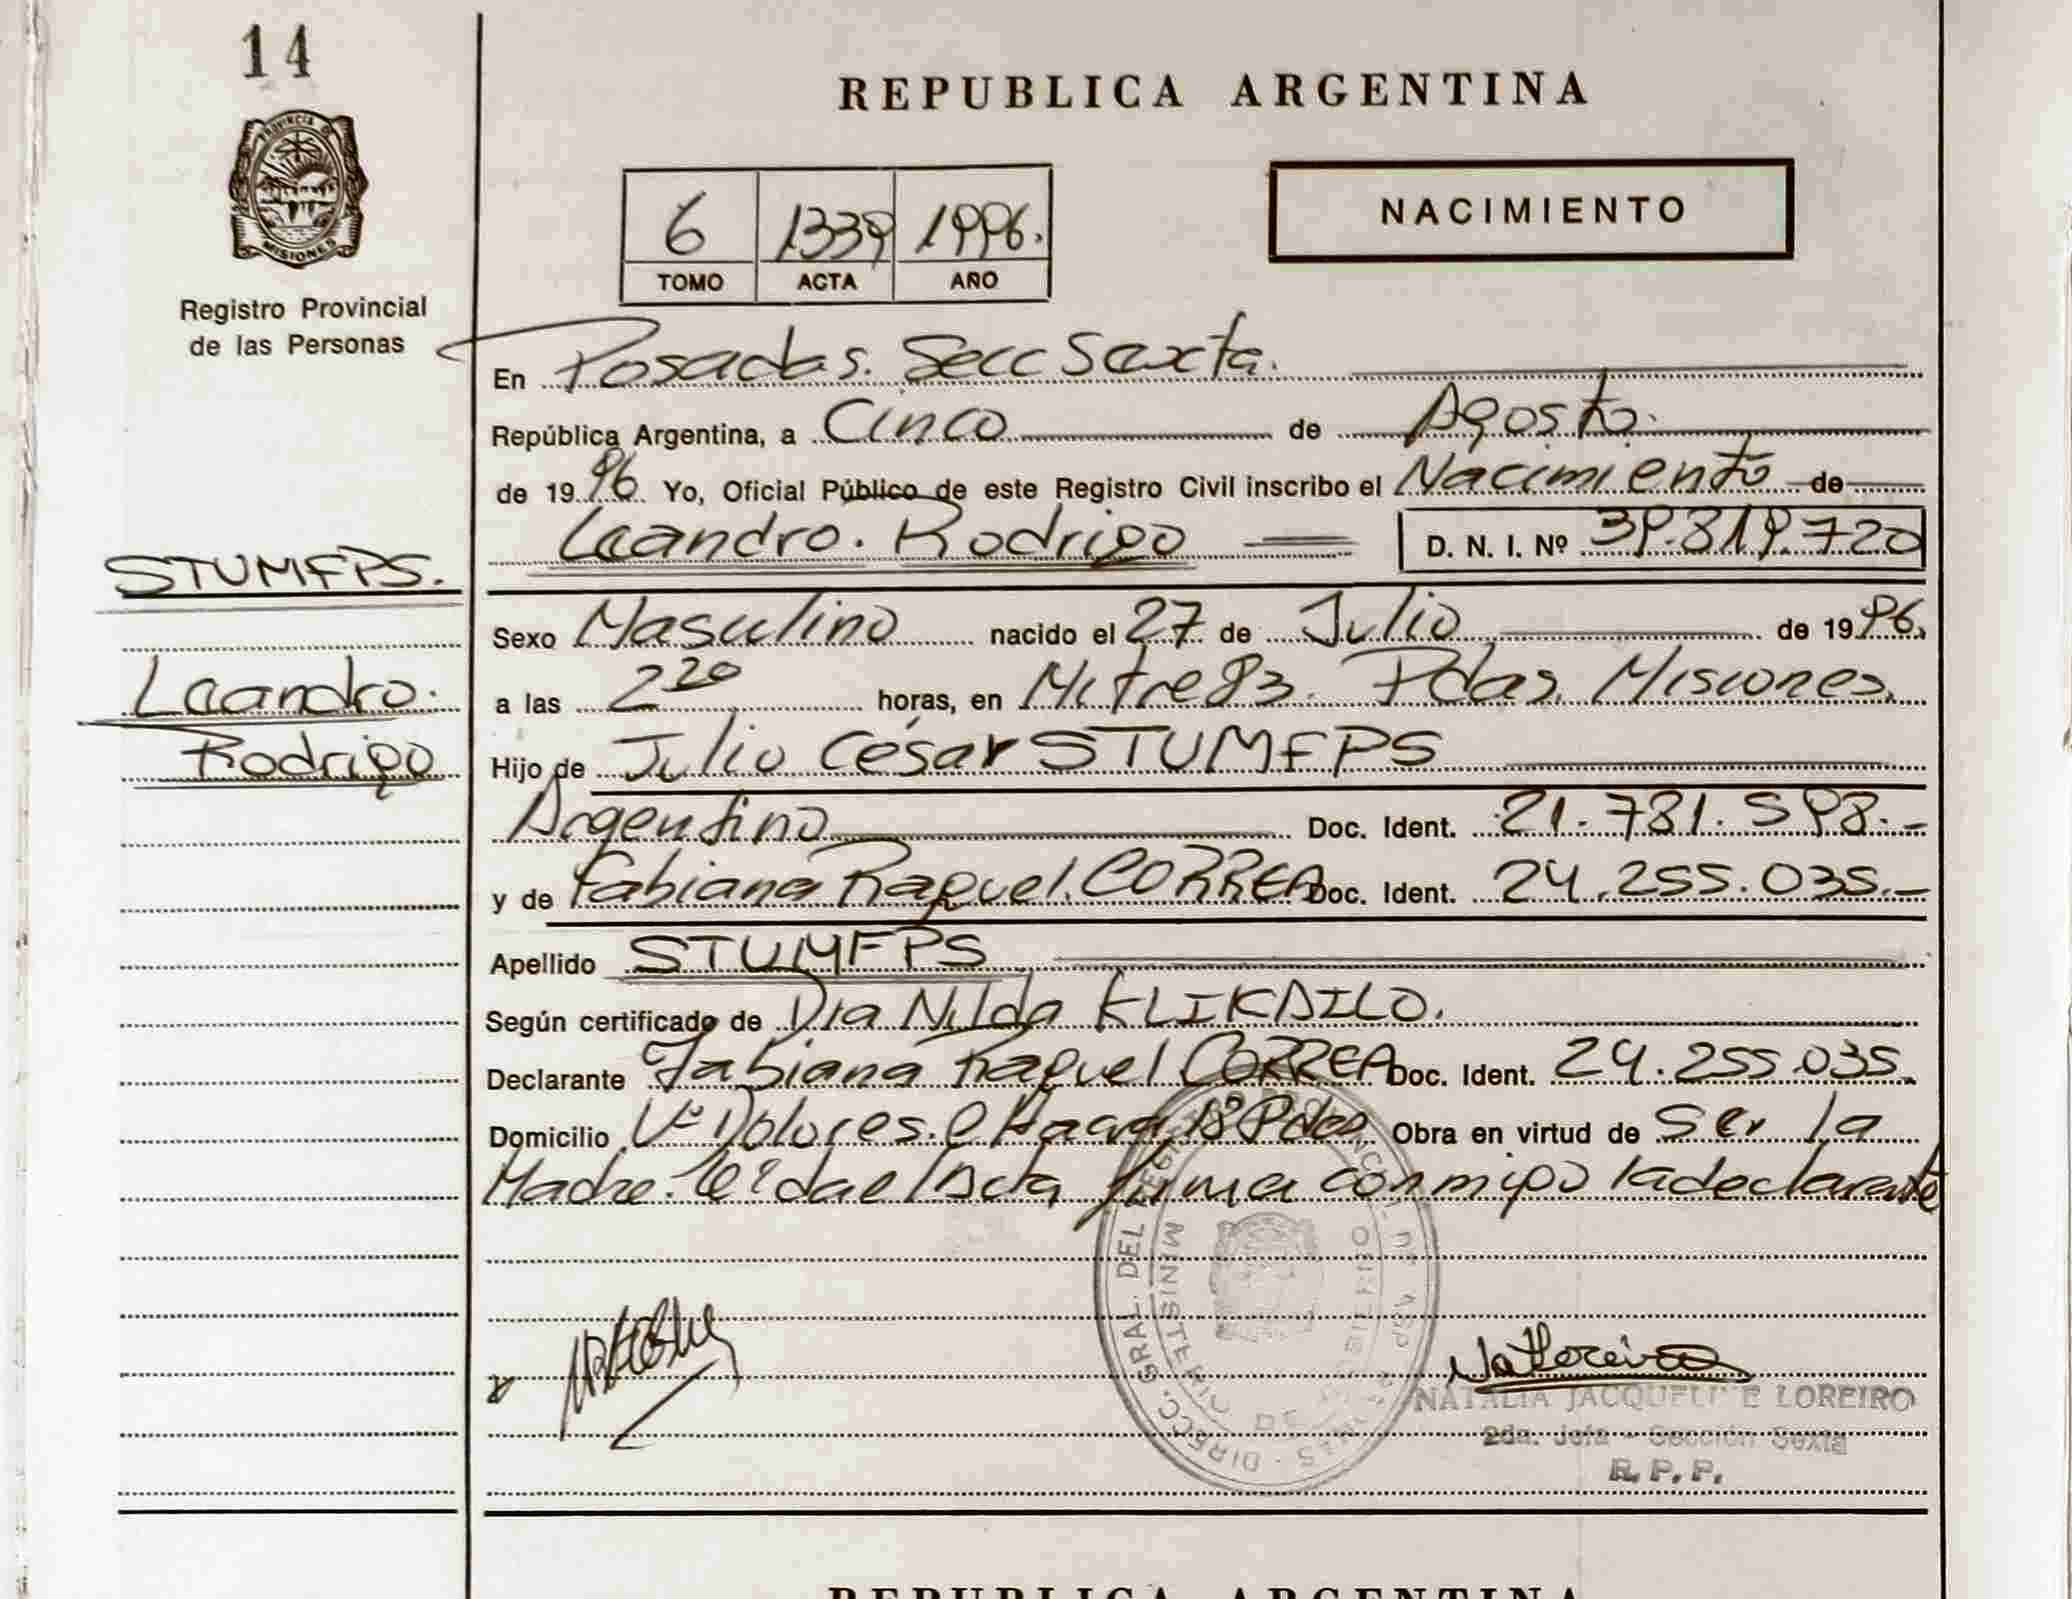 14
PROVINCIA DE
MISIONES
Registro Provincial
de las Personas
STUMFPS.
Leandro.
Rodrigo
REPUBLICA ARGENTINA
6 1339 1996.
TOMO ACTA AÑO
NACIMIENTO
En Posadas. Secc Sexta.
República Argentina, a Cinco de Agosto.
de 1996 Yo, Oficial Público de este Registro Civil inscribo el Nacimiento de
Leandro. Rodrigo D. N. I. Nº 39.819.720
Sexo Masculino nacido el 27 de Julio de 1996.
a las 2 20 horas, en Mitre 83. Pdas. Misiones.
Hijo de Julio César STUMFPS
Argentino Doc. Ident. 21.781.598.-
y de Fabiana Raquel. CORREA Doc. Ident. 24.255.035.-
Apellido STUMFPS
Según certificado de Dra Nilda KLIKAILO.
Declarante Fabiana Raquel CORREA Doc. Ident. 24.255.035.
Domicilio Vª Dolores. Pdas Obra en virtud de ser la
Madre. leída el Acta firma conmigo la declarante
DIRECC. GRAL. DEL
MINISTERIO DE
NATALIA JACQUELINE LOREIRO
2da. Jefa - Sección Sexta
R. P. P.
REPUBLICA ARGENTINA